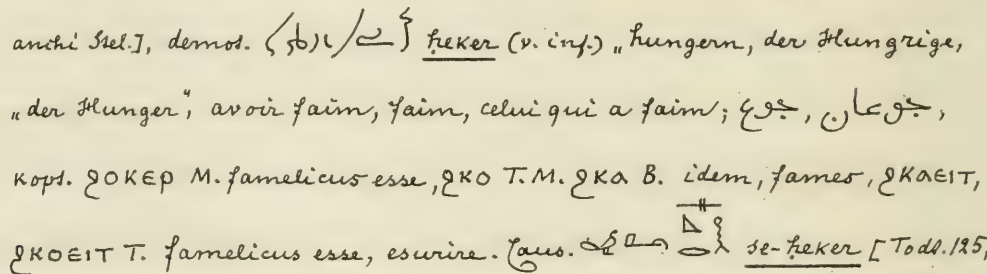 anchi Stel.], demot. heker (v. inf.) „hungern, der Hungrige,
„der Hunger“, avoir faim, faim, celui qui a faim; جوع, جوعان,
kopt. ϩⲟⲕⲉⲣ M. famelicus esse, ϩⲕⲟ T. M. ϩⲕⲁ B. idem, fames, ϩⲕⲁⲉⲓⲧ,
ϩⲕⲟⲉⲓⲧ T. famelicus esse, esurire. Caus. se-heker [Todt. 125,